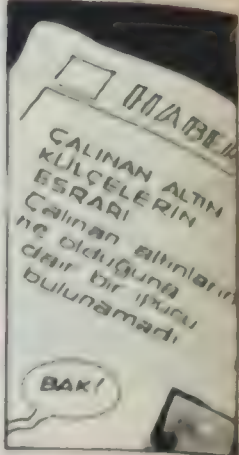 HABER
ÇALINAN ALTIN
KÜLÇELERİN
ESRARI
Çalınan altınların
ne olduğuna
dair bir ipucu
bulunamadı
BAK!